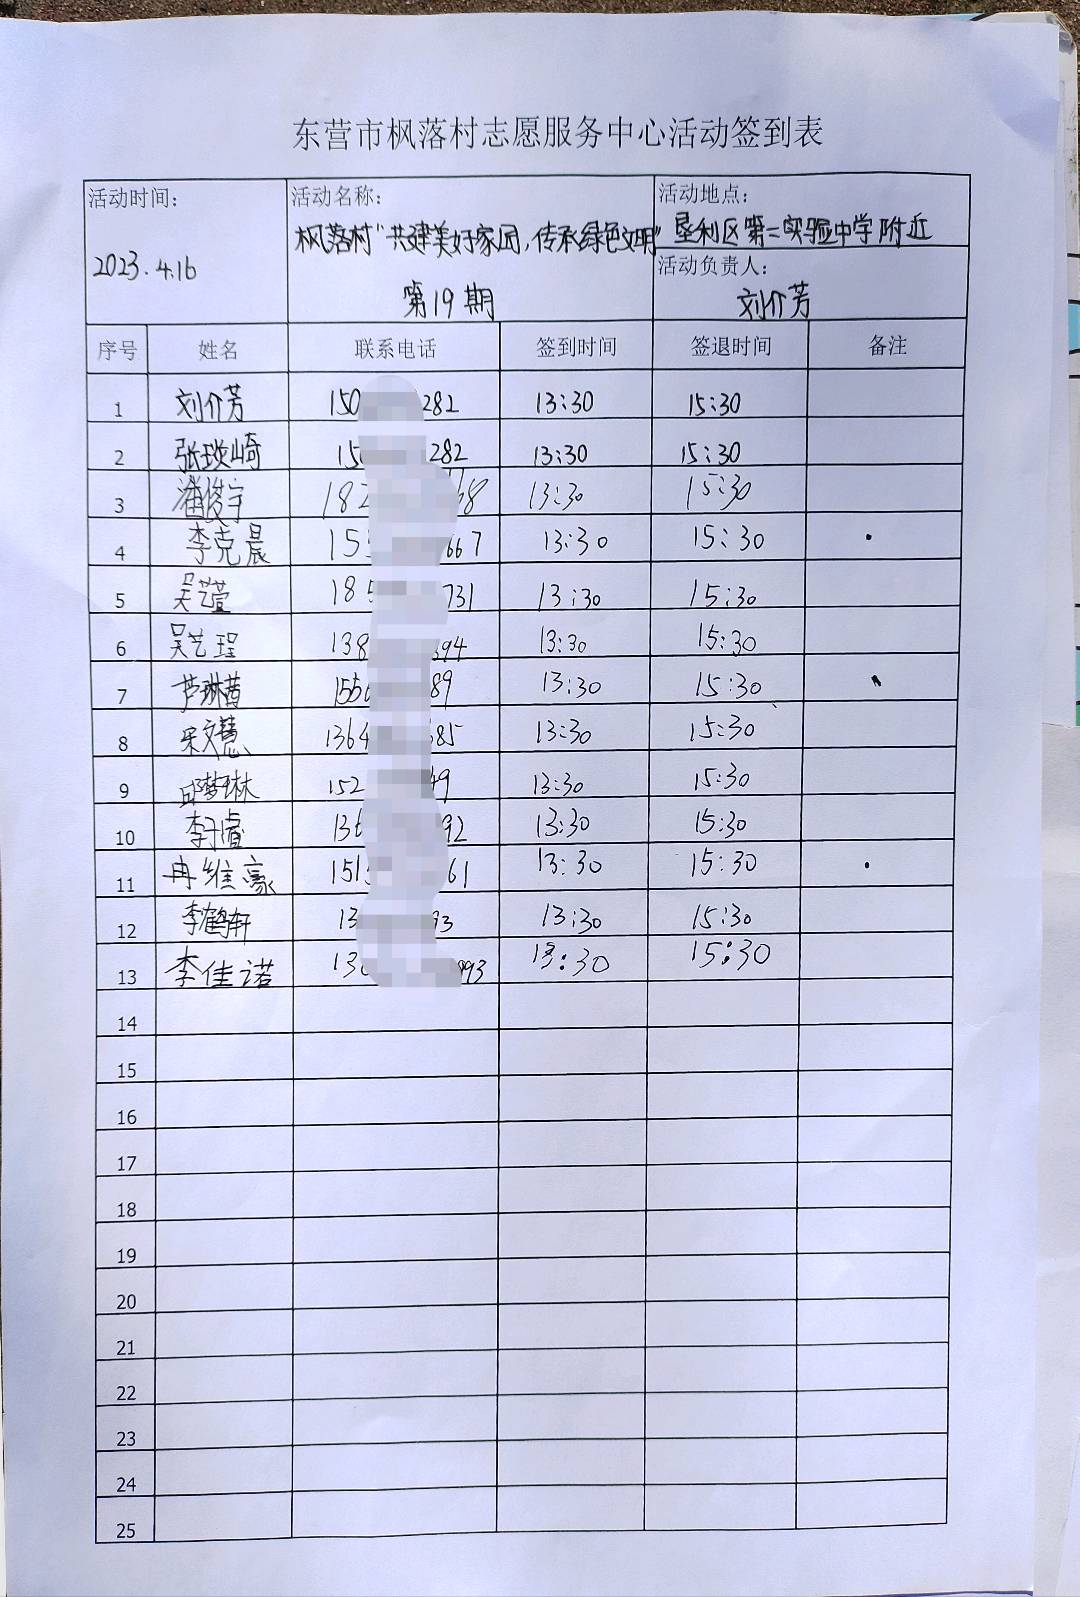 东营市枫落村志愿服务中心活动签到表
活动时间: 活动名称: 活动地点:
枫落村"共建美好家园,传承绿色文明" 垦利区第二实验中学附近
2023.4.16 活动负责人:
第19期 刘介芳
序号 姓名 联系电话 签到时间 签退时间 备注
1 刘介芳 150 282 13:30 15:30
2 张琰崎 15 282 13:30 15:30
3 潘俊宇 182 68 13:30 15:30
4 李克晨 155 667 13:30 15:30
5 吴艺萱 185 731 13:30 15:30
6 吴艺珵 138 394 13:30 15:30
7 芦琳茜 155 89 13:30 15:30
8 宋文慧 1364 685 13:30 15:30
9 邱梦琳 152 49 13:30 15:30
10 李子睿 136 92 13:30 15:30
11 冉维豪 1515 61 13:30 15:30
12 李鹤轩 13 93 13:30 15:30
13 李佳诺 130 993 13:30 15:30
14
15
16
17
18
19
20
21
22
23
24
25